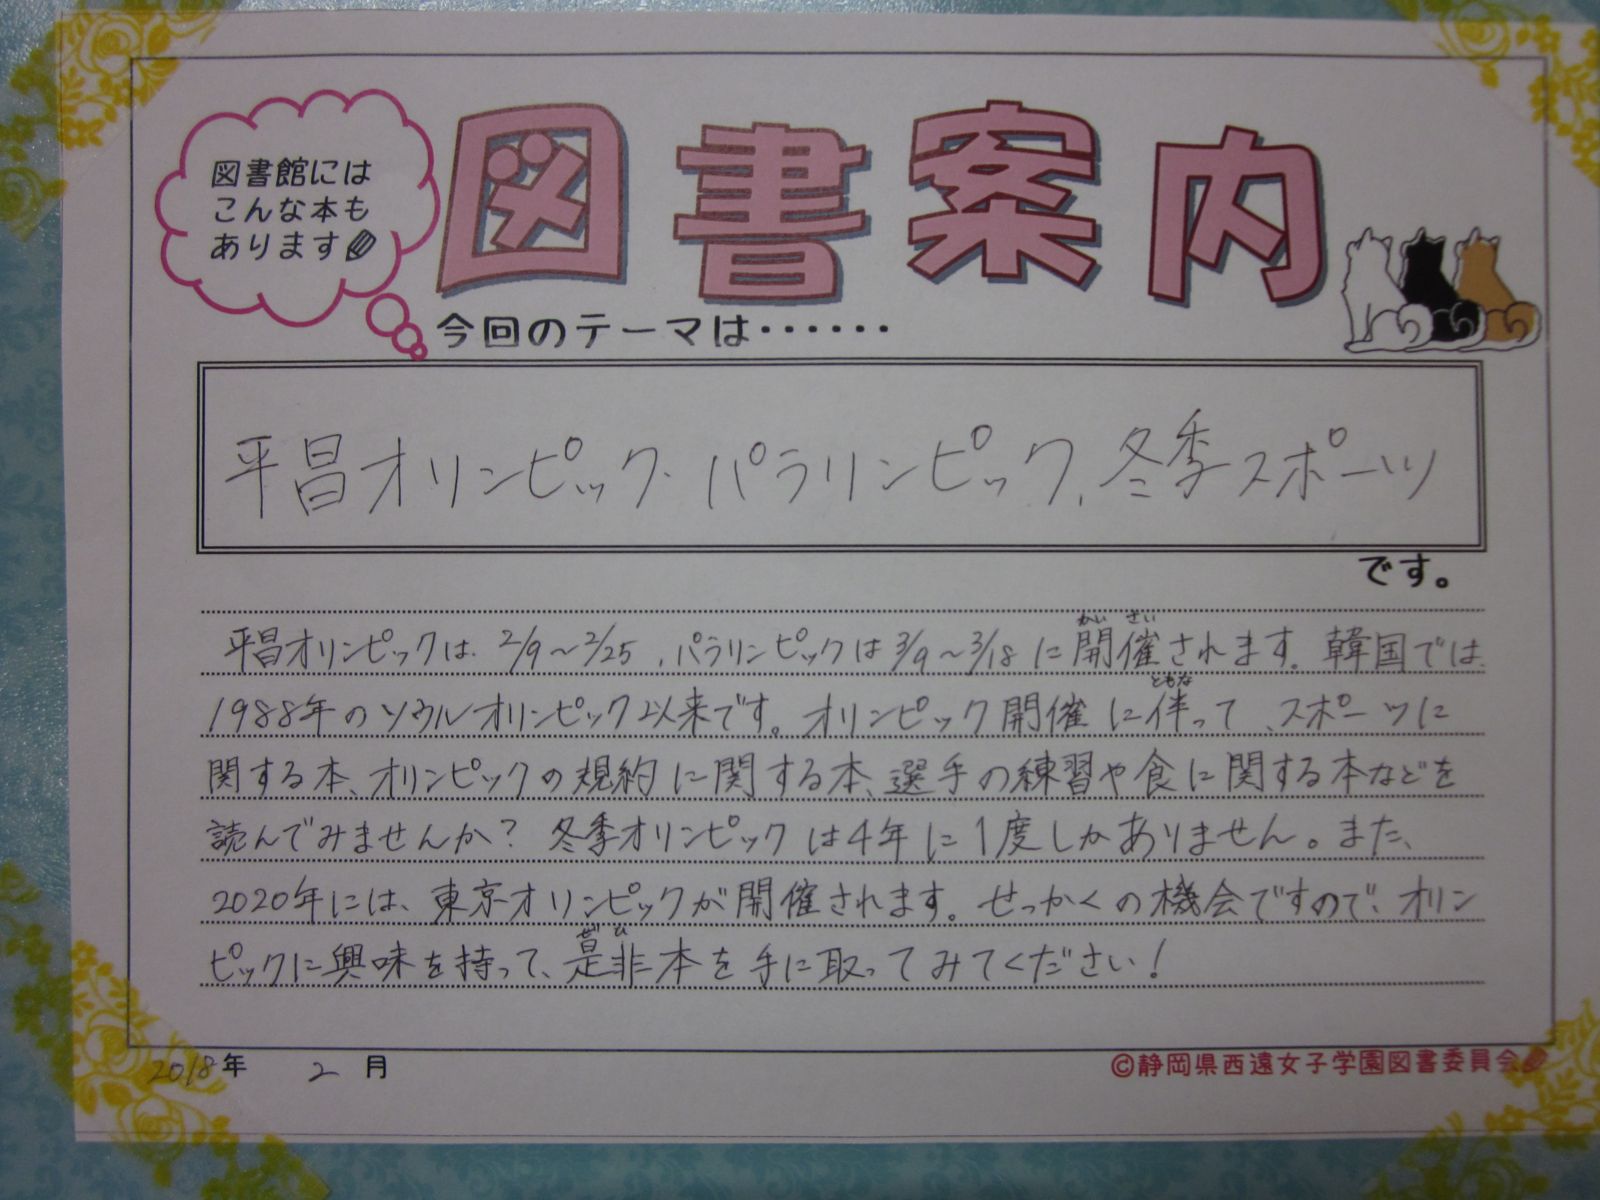 図書館には
こんな本も
あります
図書案内
今回のテーマは・・・・・・
平昌オリンピック・パラリンピック、冬季スポーツ
です。
平昌オリンピックは、2/9～2/25、パラリンピックは3/9～3/18に開催されます。韓国では、
かいさい
1988年のソウルオリンピック以来です。オリンピック開催に伴って、スポーツに
ともな
関する本、オリンピックの規約に関する本、選手の練習や食に関する本などを
読んでみませんか？冬季オリンピックは4年に1度しかありません。また、
2020年には、東京オリンピックが開催されます。せっかくの機会ですので、オリン
ピックに興味を持って、是非本を手に取ってみてください！
ぜひ
2018年 2月
©静岡県西遠女子学園図書委員会